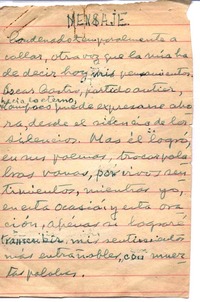 MENSAJE.
Condenado temporalmente a
callar, otra vez que la mía ha
de decir hoy mis pensamientos.
Oscar Castro, partido antier,
hacia lo eterno,
tampoco puede expresarse aho
ra, desde el silencio de los
silencios. Mas él logró,
en sus poemas, trocar pala
bras vanas, por vivos sen
timientos, mientras yo,
en esta ocasión y esta ora
ción, apenas si lograré
transcribir mis sentimientos
más entrañables, con muer
tas palabras.